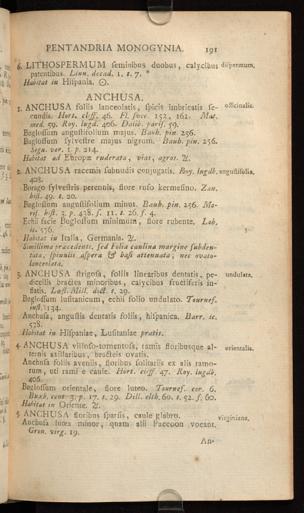 PENTANDRIA MONOGYNIA. 191
6. LITHOSPERMUM seminibus duobus, calycibus dispermum.
patentibus. Linn. decad. 1. t. 7. *
Habitat in Hispania. ☉.
ANCHUSA.
1. ANCHUSA foliis lanceolatis, spicis imbricatis se- officinalis.
cundis. Hort. cliff. 46. Fl. suec. 152, 161. Mat.
med. 59. Roy. lugdb. 406. Dalib. paris. 59.
Buglossum angustifolium majus. Bauh. pin. 256.
Buglossum sylvestre majus nigrum. Bauh. pin. 256.
Segu. ver. 1. p. 214.
Habitat ad Europæ ruderata, vias, agros. ♃.
2. ANCHUSA racemis subnudis conjugatis. Roy. lugdb. angustifolia.
408.
Borago sylvestris perennis, flore rufo kermesino. Zan.
hist. 49. t. 20.
Buglossum angustifolium minus. Bauh. pin. 256. Mo-
ris. hist. 3. p. 438. s. 11. t. 26. f. 4.
Echii facie Buglossum minimum, flore rubente. Lob.
ic. 576.
Habitat in Italia, Germania. ♃.
Simillima præcedenti, sed Folia caulina margine subden-
tata, spinulis aspera & basi attenuata; nec ovato-
lanceolata.
3. ANCHUSA strigosa, foliis linearibus dentatis, pe- undulata.
dicellis bractea minoribus, calycibus fructiferis in-
flatis. Læfl. Mill. dict. t. 29.
Buglossum lusitanicum, echii folio undulato. Tournef.
inst. 134.
Anchusa, angustis dentatis foliis, hispanica. Barr. ic.
578.
Habitat in Hispaniæ, Lusitaniæ pratis.
4. ANCHUSA villoso-tomentosa, ramis floribusque al- orientalis.
ternis axillaribus, bracteis ovatis.
Anchusa foliis aveniis, floribus solitariis ex alis ramo-
rum, uti rami e caule. Hort. cliff. 47. Roy. lugdb.
406.
Buglossum orientale, flore luteo. Tournef. cor. 6.
Buxb. cent. 3. p. 17. t. 29. Dill. elth. 60. t. 52. f. 60.
Habitat in Oriente. ♃.
5. ANCHUSA floribus sparsis, caule glabro. virginiana.
Anchusa lutea minor, quam alii Paccoon vocant.
Gron. virg. 19.
An-